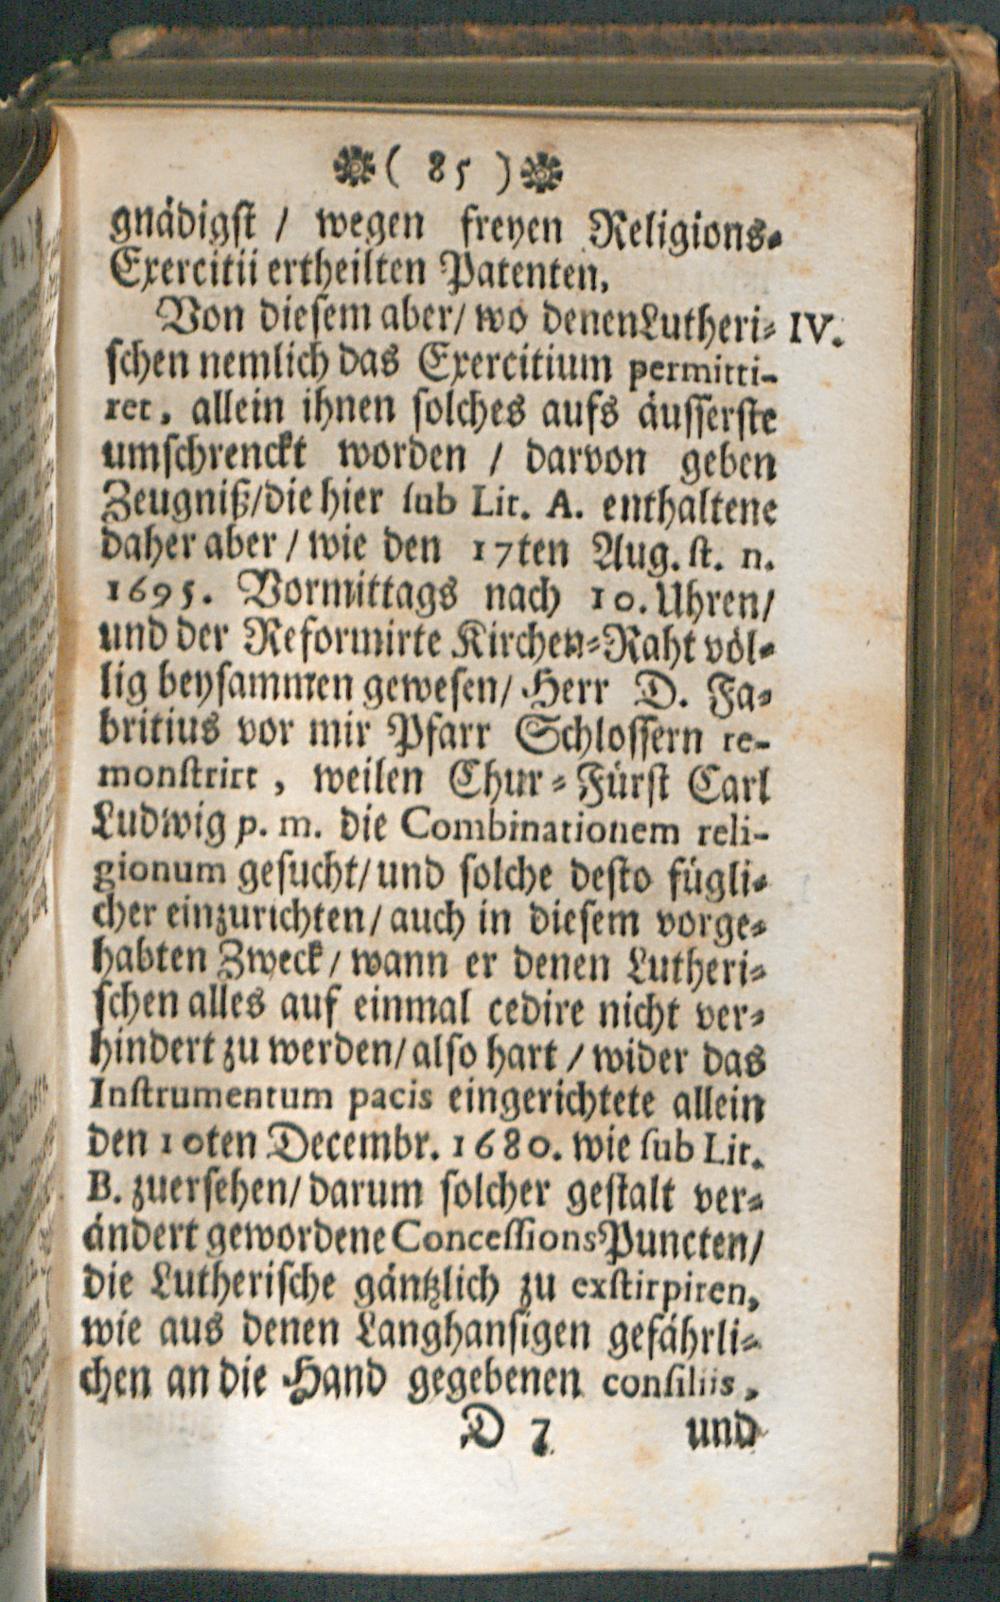 ( 85 )
gnädigst / wegen freyen Religions-
Exercitii ertheilten Patenten.
Von diesem aber/ wo denen Lutheri- IV.
schen nemlich das Exercitium permitti-
ret, allein ihnen solches aufs äusserste
umschrenckt worden / darvon geben
Zeugniß/die hier sub Lit. A. enthaltene
daher aber / wie den 17ten Aug. st. n.
1695. Vormittags nach 10. Uhren/
und der Reformirte Kirchen-Raht völ-
lig beysammen gewesen/ Herr D. Fa-
britius vor mir Pfarr Schlossern re-
monstrirt, weilen Chur-Fürst Carl
Ludwig p. m. die Combinationem reli-
gionum gesucht/und solche desto fügli-
cher einzurichten/ auch in diesem vorge-
habten Zweck / wann er denen Lutheri-
schen alles auf einmal cedire nicht ver-
hindert zu werden/ also hart / wider das
Instrumentum pacis eingerichtete allein
den 10ten Decembr. 1680. wie sub Lit.
B. zuersehen/ darum solcher gestalt ver-
ändert gewordene Concessions-Puncten/
die Lutherische gäntzlich zu exstirpiren,
wie aus denen Langhansigen gefährli-
chen an die Hand gegebenen consiliis,
D 7 und